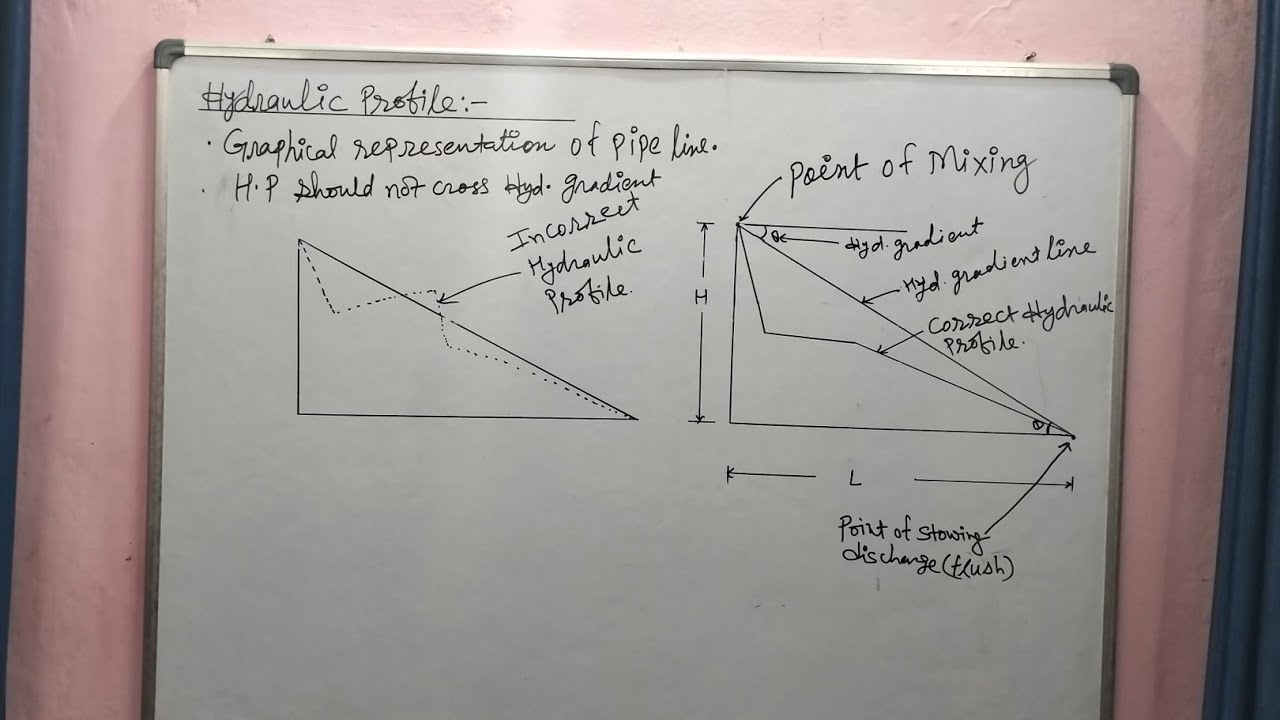 Hydraulic Profile:-
· Graphical representation of pipe line.
· H.P should not cross Hyd. gradient
Incorrect
Hydraulic
Profile.
Point of Mixing
θ
Hyd. gradient
Hyd. gradient line
Correct Hydraulic
Profile.
H
θ
L
Point of stowing
discharge (flush)